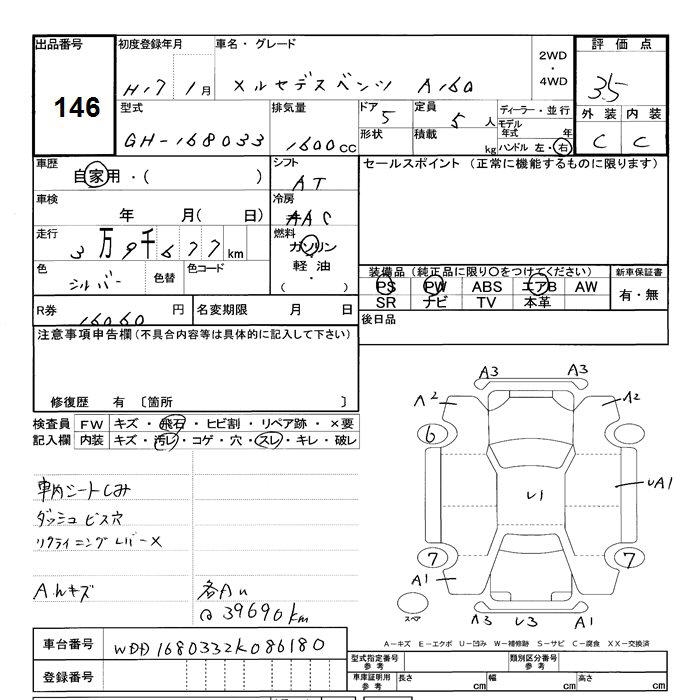 出品番号 初度登録年月 車名・グレード 2WD ・ 4WD 評価点
146 H17 1月 メルセデスベンツ A160 3.5
型式 排気量 ドア 定員 ディーラー・並行 外装 内装
GH-168033 1600cc 5 5人 モデル年式 年 C C
形状 積載 kg ハンドル 左・右
車歴 自家用・( ) シフト AT セールスポイント (正常に機能するものに限ります)
車検 年 月( 日) 冷房 AAC
走行 3万9千677km 燃料 ガソリン
軽油
・
( )
色 シルバー 色替 色コード
装備品 (純正品に限り○をつけてください) 新車保証書
PS PW ABS エアB AW 有・無
SR ナビ TV 本革
R券 16060円 名変期限 月 日 後日品
注意事項申告欄 (不具合内容等は具体的に記入して下さい)
修復歴 有 〔箇所 〕
検査員記入欄 FW キズ・飛石・ヒビ割・リペア跡・×要
内装 キズ・汚レ・コゲ・穴・スレ・キレ・破レ
車内シートしみ
ダッシュ ビス穴
リクライニングレバー×
A.hキズ 各AU
@39690km
A3 A3
A2 A2
6
U1 UA1
7 7
A1
スペア
A3 U3 A1
A-キズ E-エクボ U-凹み W-補修跡 S-サビ C-腐食 XX-交換済
車台番号 WDD1680332K086180
型式指定番号 参考 類別区分番号 参考
登録番号 車庫証明用 参考 長さ cm 幅 cm 高さ cm